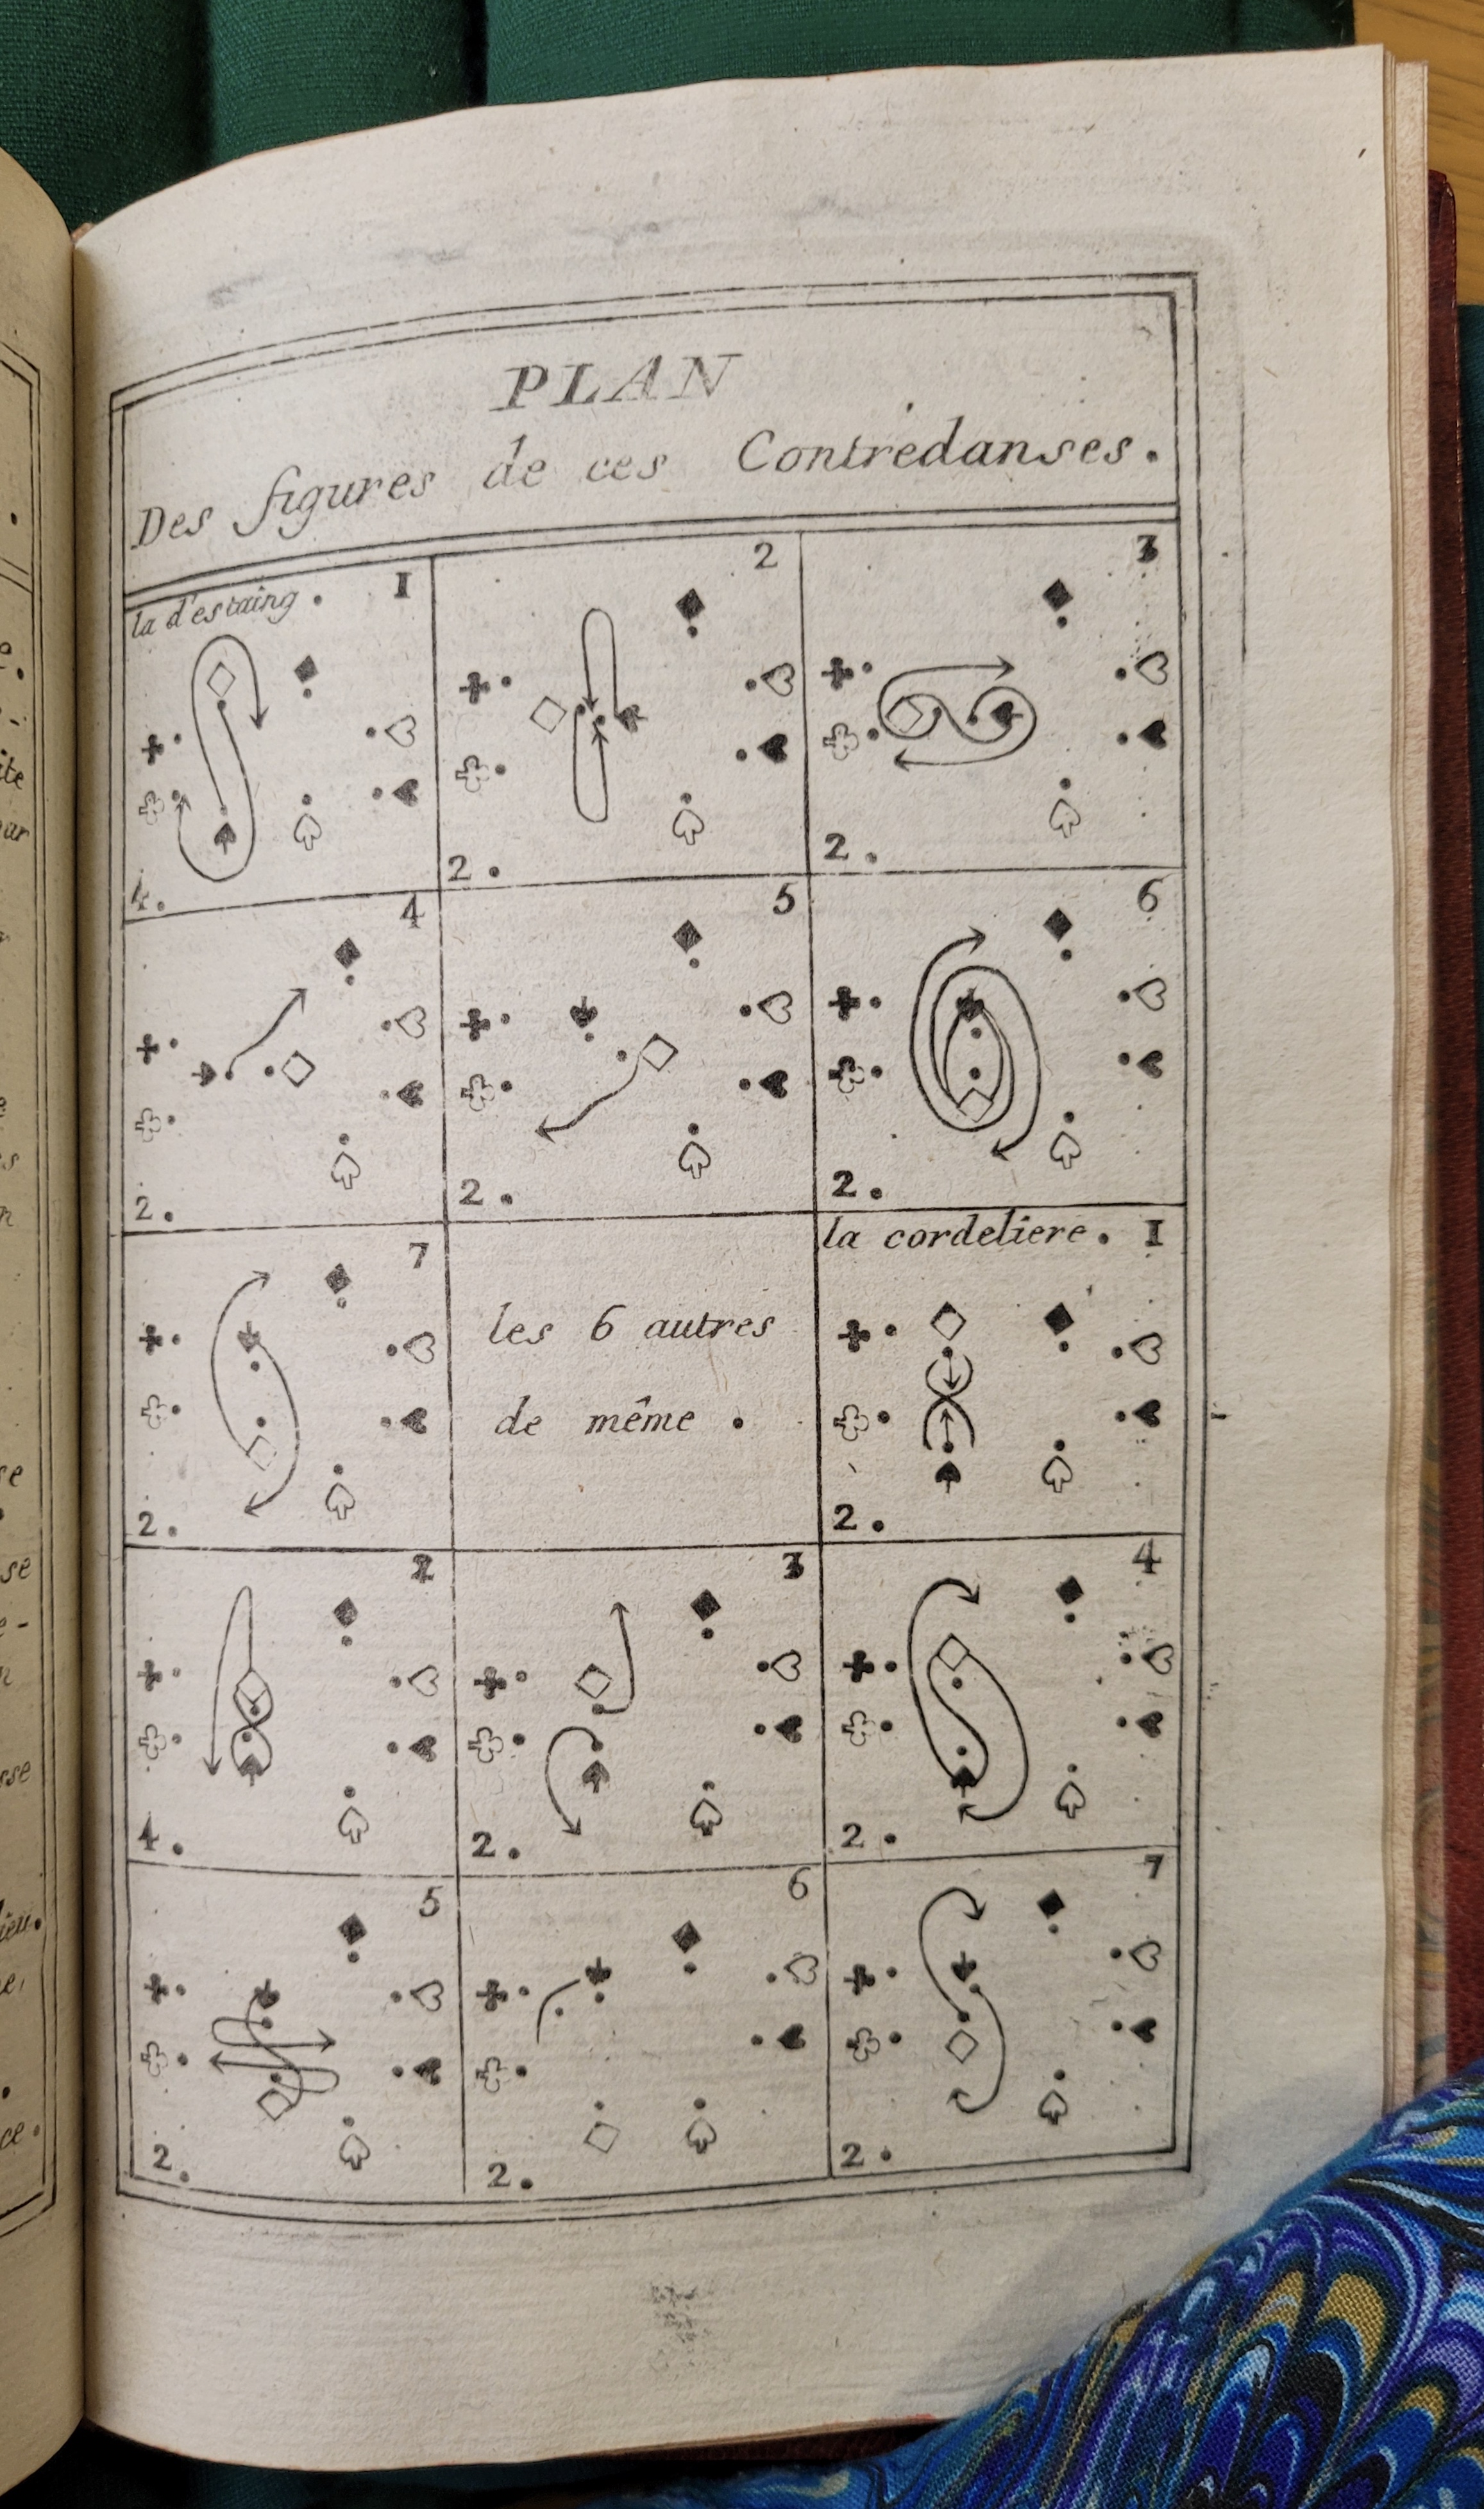 PLAN
Des figures de ces Contredanses.
la d'estaing. 1
4.
2
2.
3
2.
4
2.
5
2.
6
2.
7
2.
les 6 autres
de même.
la cordeliere. 1
2.
2
4.
3
2.
4
2.
5
2.
6
2.
7
2.